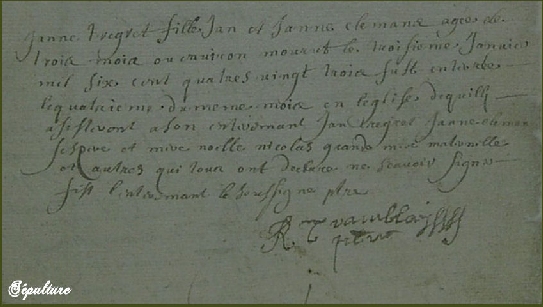 Janne tregret fille Jan et Janne clemana agee de
trois mois ou environ mourut le troisieme Janvier
mil six cent quatres vingt trois fust enterree
le quatrieme du meme mois en leglise de quilli
assisteront a son enterement Jan tregret Janne clemana
ses pere et mere noelle nicolas grande mere maternelle
et autres qui tous ont declare ne scavoir signer
fist l'enterement le soussigne ptre
R. T
ptre
Sépulture